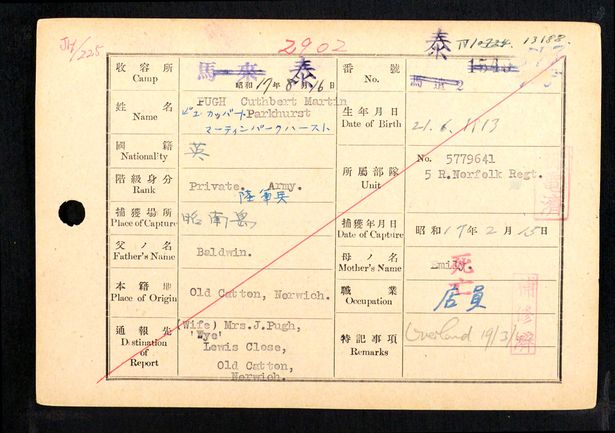 JH/225
2902
泰
13188.
收容所
Camp
馬來
泰
昭和17年8月16日
番號
No.
1545
馬 2
姓名
Name
PUGH Cuthbert Martin
Parkhurst
ピュ カッバート
マーティンパークハースト
生年月日
Date of Birth
21.6.1913
國籍
Nationality
英
所屬部隊
Unit
No. 5779641
5 R.Norfolk Regt.
階級身分
Rank
Private. Army.
陸軍兵
捕獲場所
Place of Capture
昭南島
捕獲年月日
Date of Capture
昭和17年2月15日
父ノ名
Father's Name
Baldwin.
母ノ名
Mother's Name
Emily.
死亡
本籍地
Place of Origin
Old Catton, Norwich.
職業
Occupation
店員
通報先
Destination of Report
(Wife) Mrs.J.Pugh,
'Wye'
Lewis Close,
Old Catton,
Norwich.
特記事項
Remarks
Overland 19/3/4